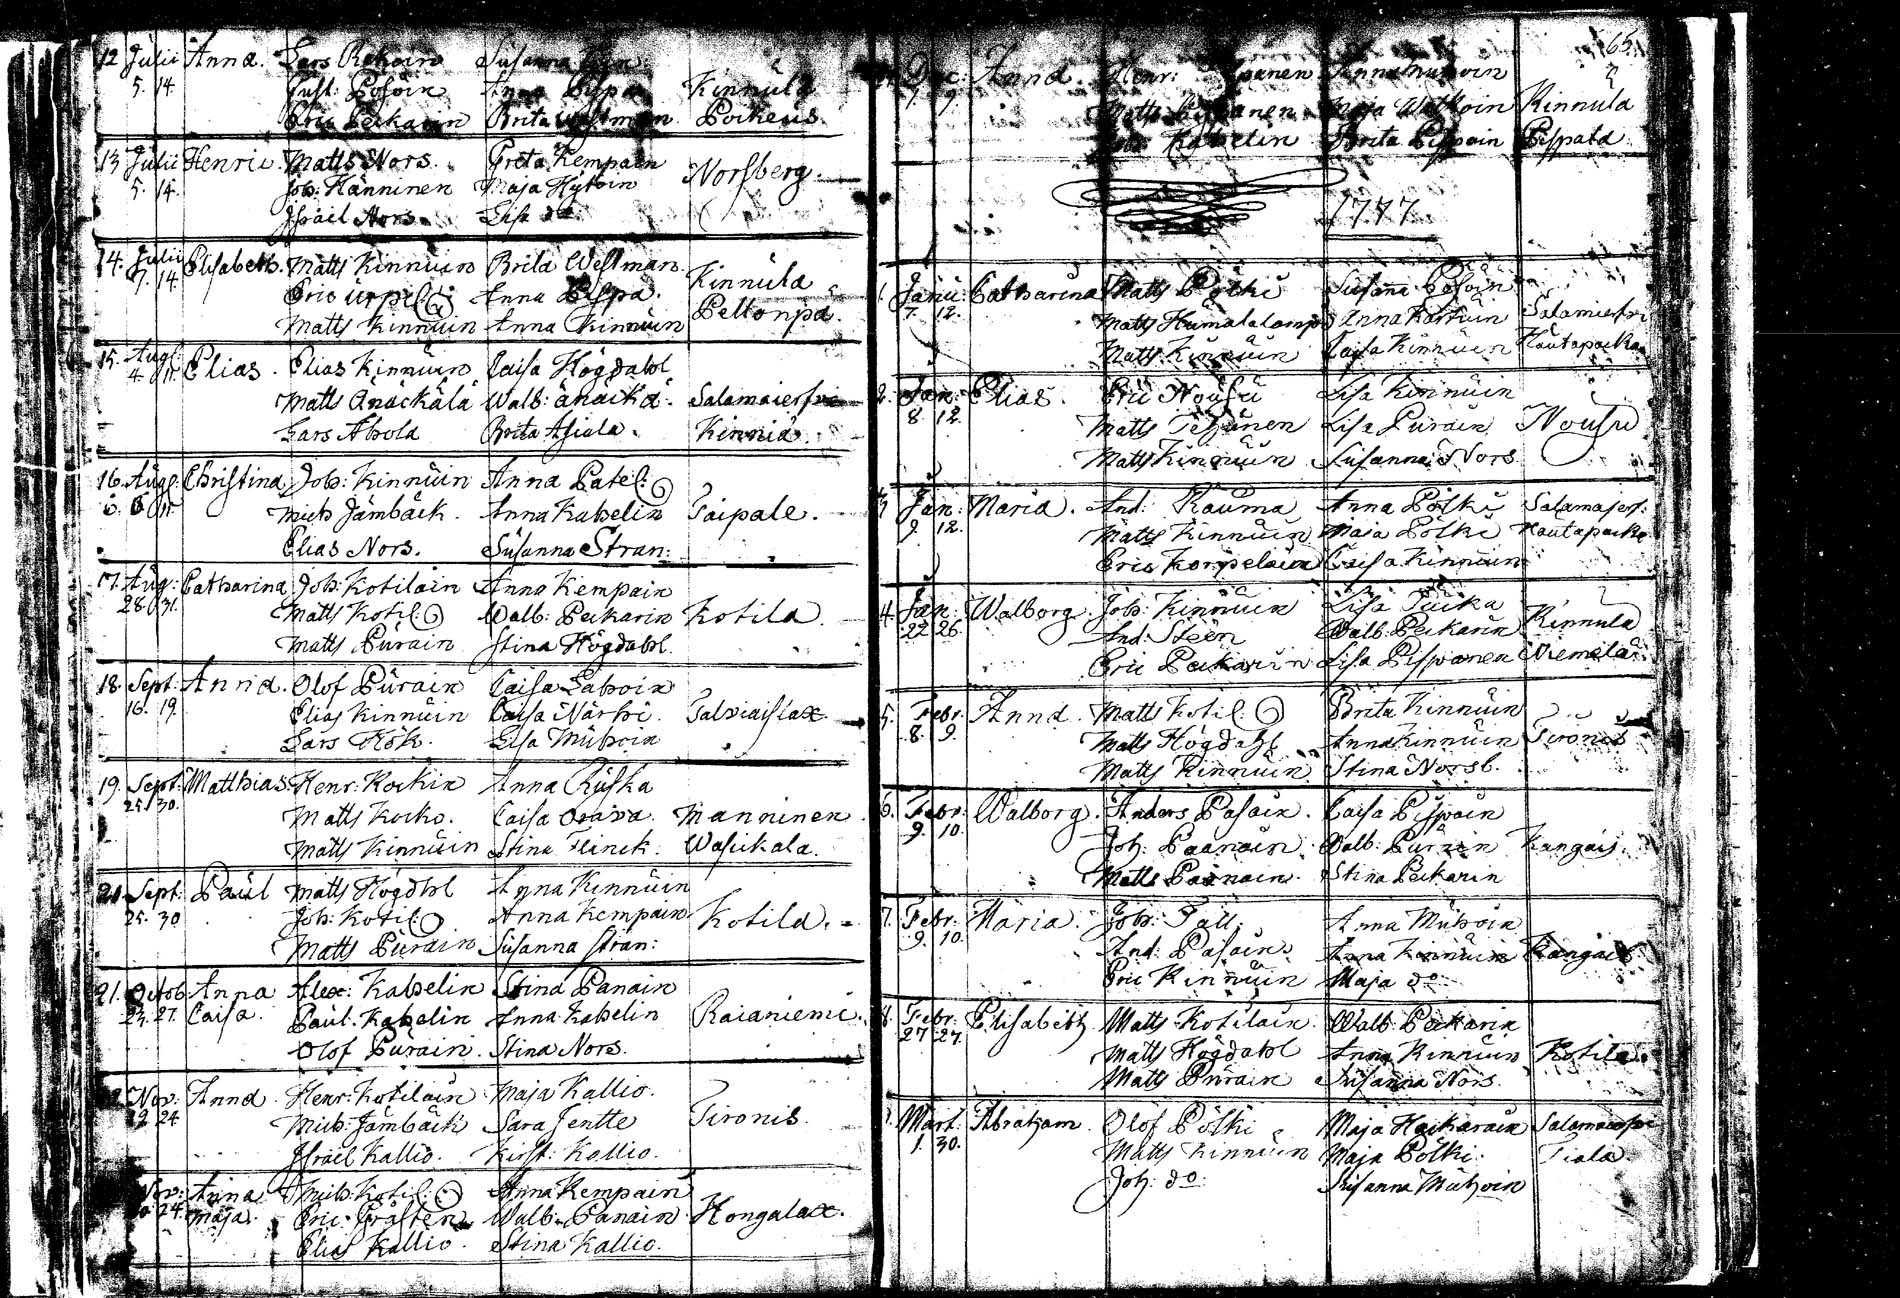 12 Julii Anna. Lars Rekoin Susanna
5. 14. Gust: Posoin Anna Pispa Kinnula
Eric Peckarin Brita Westman Poikeus
13 Julii Henric Matts Nors. Greta Kempain
5. 14. Joh: Hänninen Maja Hytöin Norsberg.
Israel Nors. Lisa do
14. Julii Elisabeth. Matts Kinnuin Brita Westman.
7. 14. Eric Anna Pispa. Kinnula
Matts Kinnuin Anna Kinnuin Peltonpä.
15. Aug: Elias. Elias Kinnuin Caisa Högdahl
4. 11. Matts Änäckälä Walb: änäikä. Salamaierfvi
Lars Ahola Brita Asiala. Kinnia.
16. Aug: Christina Joh: Kinnuin Anna Patel:
6. 11. Mich Jämbäck. Anna Kahelin Taipale.
Elias Nors. Susanna Stran:
17. Aug: Catharina Joh: Kotilain Anna Kempain
28. 31. Matts Kotil: Walb: Peckarin Kotila
Matts Purain Stina Högdahl.
18. Sept: Anna. Olof Purain Caisa Lahoin
16. 19. Elias Kinnuin Caisa Närhi. Talviaislax
Lars Kök. Lisa Muhoin
19. Sept: Matthias Henr: Kockin Anna Ruska
25. 30. Matts Kocko. Caisa Orava. Manninen
Matts Kinnuin Stina Flinck. Wasikala.
20. Sept: Paul Matts Högdhl Anna Kinnuin
25. 30 Joh: Kotil: Anna Kempain Kotila.
Matts Purain Susanna Stran:
21. Octob Anna Alex: Kahelin Stina Panain
23. 27. Caisa. Paul. Kahelin Anna Kahelin Raianiemi.
Olof Purain. Stina Nors.
Nov: Anna Henr: Kotilain Maja Kallio.
19 24 Mich: Jämbäck Sara Jentte Tironis.
Israel Kallio. Kirst: Kallio.
Nov: Anna Mich: Kotil: Anna Kempain
24. Maja. Eric Gråsten Walb: Panain Hongalax.
Elias Kallio. Stina Kallio.
65.
Dec: Anna. Henr: Anna
9. Matts Maja Kinnula
Kahelin Brita Pispain Pispala
1777.
1. Janu: Catharina Matts Pölki Susanna Posoin
7. 12. Matts Humalalamp: Anna Karhuin Salamierfvi
Matts Kinnuin Caisa Kinnuin Hautapocka
2. Jan: Elias. Eric Nousu Lisa Kinnuin
8. 12. Matts Tehunen Lisa Purain Nousu
Matts Kinnuin Susanna Nors
3 Jan: Maria. And: Rauma Anna Pölki Salamajerf:
9. 12. Matts Kinnuin Maja Pölki Hautapocka
Eric Korpelain Caisa Kinnuin
4. Jan: Walborg. Joh: Kinnuin Lisa Puika
22 26. And: Steen Walb: Peckarin Kinnula
Eric Peckarin Lisa Pispanen Niemelä.
5. Febr: Anna. Matts Kotil: Brita Kinnuin
8. 9. Matts Högdahl Anna Kinnuin Tironis
Matts Kinnuin Stina Norsb.
6. Febr: Walborg. Anders Pasain. Caisa Pispain
9. 10. Joh: Paanain. Walb: Purain Kangais.
Matts Paanain. Stina Peckarin
7. Febr: Maria. Joh: Fall. Anna Muhoin
9. 10. And: Pasain. Anna Kinnuin Kangais
Eric Kinnuin Maja do
8. Febr: Elisabeth Matts Kotilain Walb: Peckarin
27 27. Matts Högdahl Anna Kinnuin Kotila.
Matts Purain Susanna Nors.
Mart: Abraham Olof Pölki Maja Haikarain Salamaierfvi
1. 30. Matts Kinnuin Maja Pölki. Tiala.
Joh: do: Susanna Muhoin